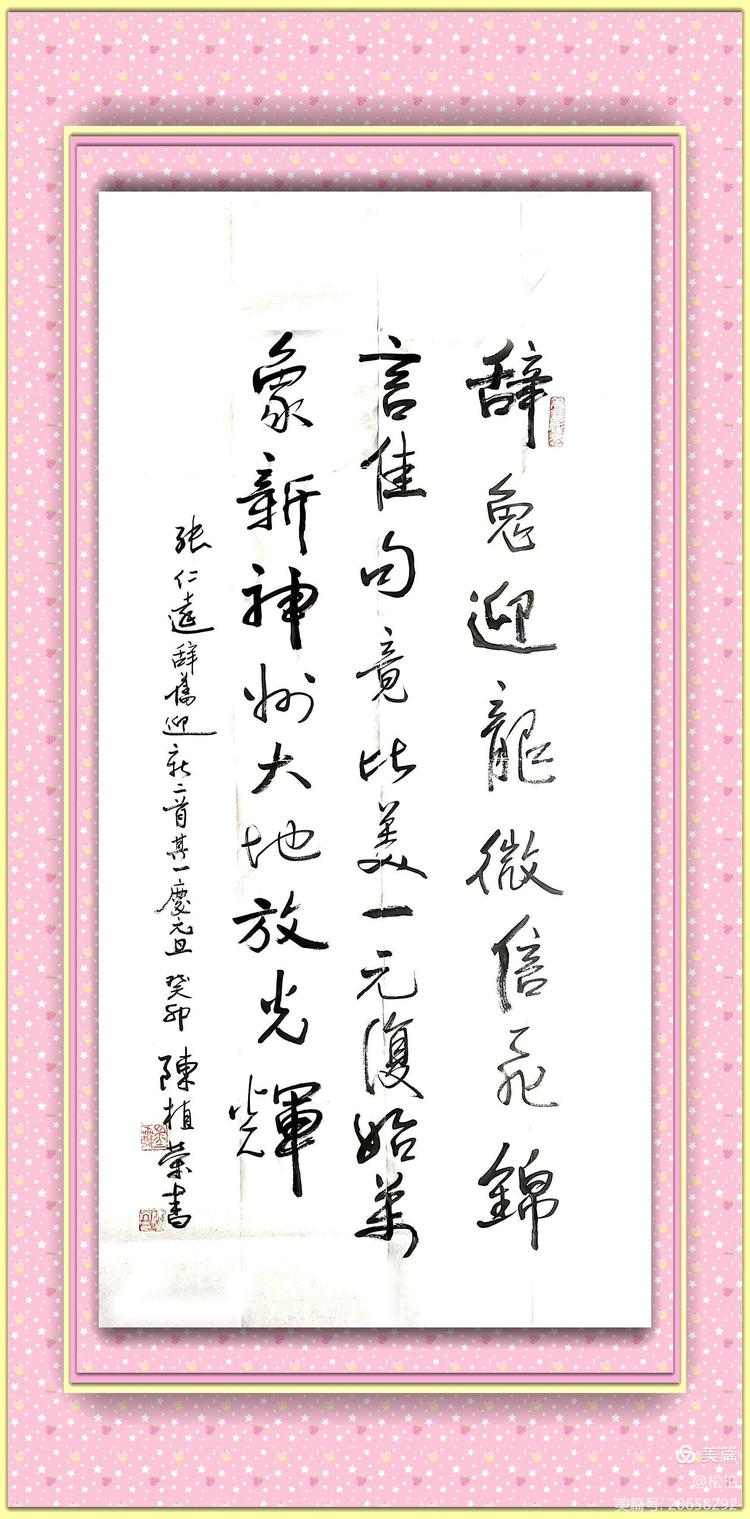 辞兔迎龍微信飛錦
言佳句竟比美一元復始萬
象新神州大地放光輝
张仁遠辞舊迎新二首其一慶元旦 癸卯 陳植榮書
美篇
@松柏
美篇号: 20658292